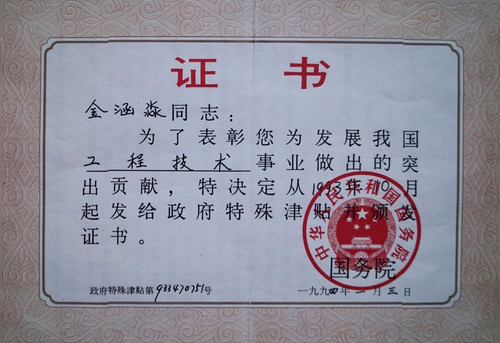 证书
金涵淼同志：
为了表彰您为发展我国
工程技术事业做出的突
出贡献，特决定从1993年10月
起发给政府特殊津贴并颁发
证书。
中华人民共和国国务院
国务院
政府特殊津贴第933470751号
一九九四年一月三日